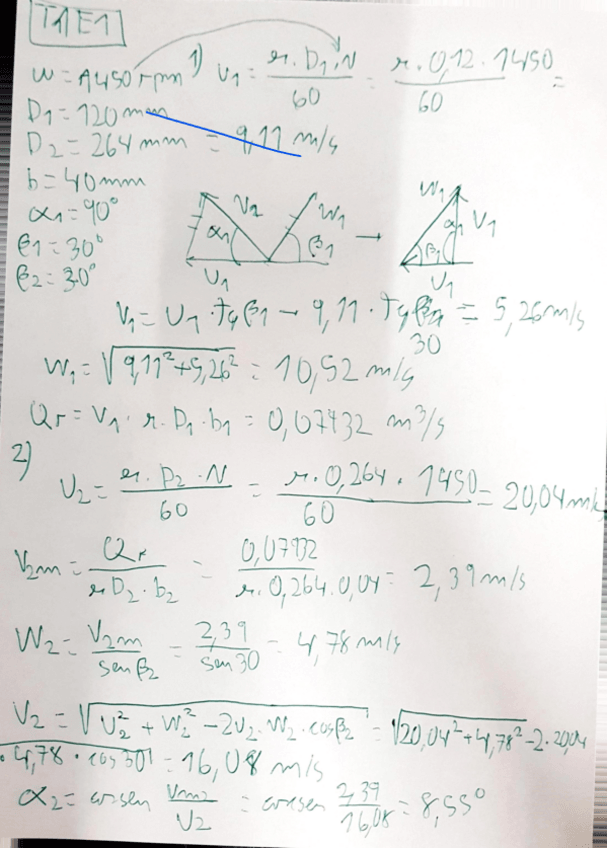 T1E1
w = 1450 rpm 1) U₁ = π·D₁·N / 60 = π·0,12·1450 / 60 =
D₁ = 120 mm
D₂ = 264 mm = 9,11 m/s
b = 40 mm
α₁ = 90°
β₁ = 30°
β₂ = 30°
V₂ W₁ α₁ β₁ U₁ → W₁ α₁ V₁ β₁ U₁
V₁ = U₁·tgβ₁ → 9,11·tg 30 = 5,26 m/s
W₁ = √(9,11² + 5,26²) = 10,52 m/s
Qr = V₁·π·D₁·b₁ = 0,07932 m³/s
2)
U₂ = π·D₂·N / 60 = π·0,264·1450 / 60 = 20,04 m/s
V₂m = Qr / πD₂·b₂ = 0,07932 / π·0,264·0,04 = 2,39 m/s
W₂ = V₂m / sen β₂ = 2,39 / sen 30 = 4,78 m/s
V₂ = √(U₂² + W₂² - 2U₂·W₂·cosβ₂) = √(20,04² + 4,78² - 2·20,04
·4,78·cos 30) = 16,08 m/s
α₂ = arcsen Vm₂ / V₂ = arcsen 2,39 / 16,08 = 8,55°